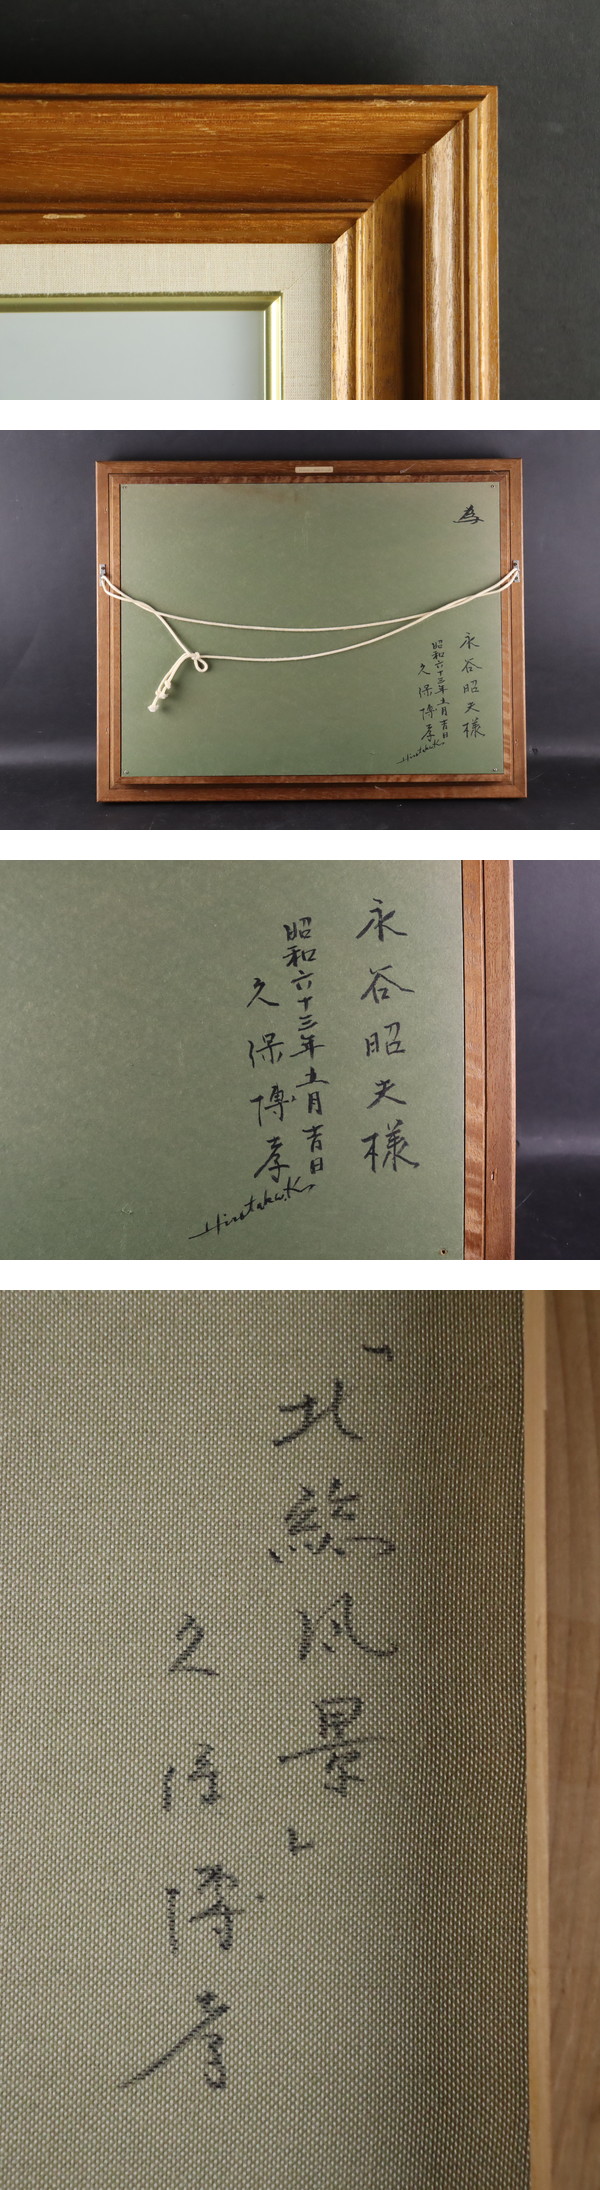 為
永谷昭夫様
昭和六十三年五月吉日
久保博孝
Hirotaka.K
永谷昭夫様
昭和六十三年五月吉日
久保博孝
Hirotaka.K
「北総風景」
久保博孝